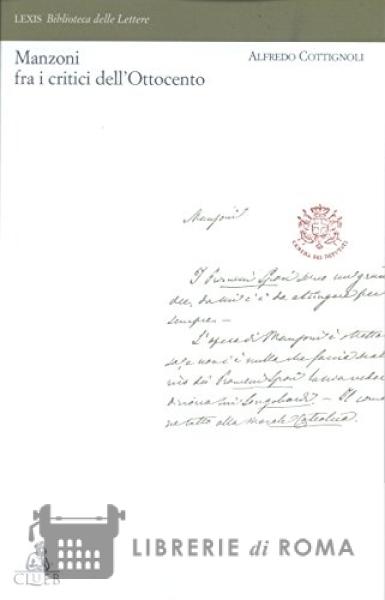 LEXIS Biblioteca delle Lettere
Manzoni
fra i critici dell'Ottocento
ALFREDO COTTIGNOLI
Manzoni
CAMERA DEI DEPUTATI
I Promessi Sposi sono un gran
da cui c'è da attingere per
sempre —
L'opera di Manzoni è
non c'è nulla che
dei Promessi Sposi
sui Longobardi — Il
tutto alla morale Cattolica.
CLUEB
LIBRERIE di ROMA